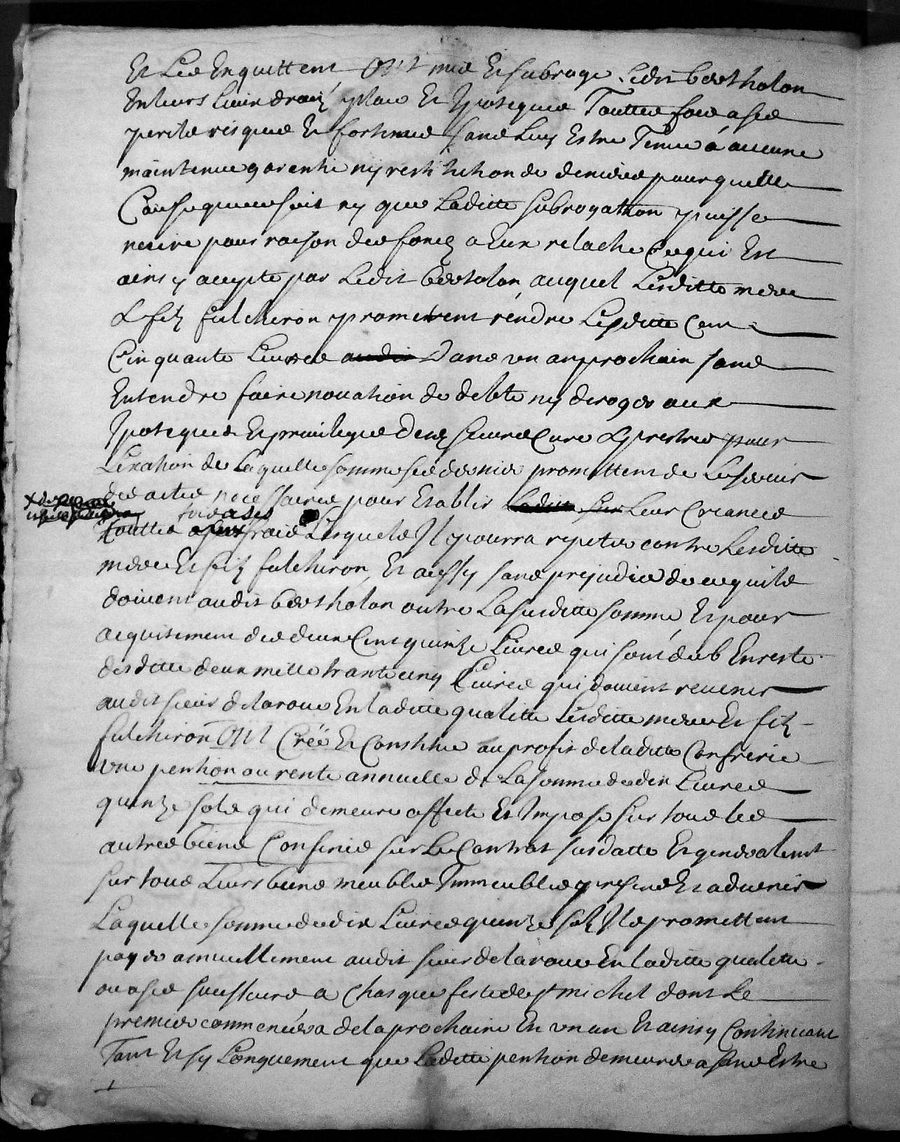 Et Les En quittent Ont mis Et subroge Ledit berthollon
En leurs Lieu droit place Et Ipoteques Touttes fois a ses
perils risques Et fortunes sans Luy Estre Tenus a aucune
maintenue garentie ny restitution de deniers pour quelle
Cause que ce soit ny que Laditte subrogation puisse
nuire pour raison des fonds a Eux relaches Ce qui Est
ainsy accepte par Ledit bertholon auquel Lesditte mere
& fils fulchiron promettent rendre Lesditte Cent
Cinquante Livres dans un an prochain sans
Entendre faire novation de debte ny deroger aux
Ipoteques Et privileges desd sieurs Cure & prestres pour
L'exation de Laquelle somme ses deniers promettent de
des actes necessaires pour Establir Leur Creances
touttes fois a ses frais Lesquels Il pourra repeter contre Lesditte
mere Et fils fulchiron, Et aussy sans prejudice de ce quils
doivent audit bertholon outre La susditte somme Et pour
acquitement des deux Cent quinze Livres qui sont deub En reste
desditte deux mille trante cinq Livres qui doivent revenir
audit sieur delaroue En laditte qualitte Lesditte mere Et fils
fulchiron Ont Créé Et Constitue au profit de laditte Confrerie
une pention ou rente annuelle de La somme de dix Livres
quinze sols qui demeure affecte Et Impose sur tous les
autres biens Confines sur Le Contrat susdatte Et generalement
sur tous Leurs biens meubles Immeubles presens Et advenir
Laquelle somme de dix Livres quinze sols Ils promettent
payer annuellement audit sieur delaroue En laditte qualitte
ou a ses successeurs a Chasque feste de st michel dont Le
premier commencera de la prochaine En un an Et ainsy Continuant
Tant Et sy Longuement que Laditte pention demeurera sans Estre